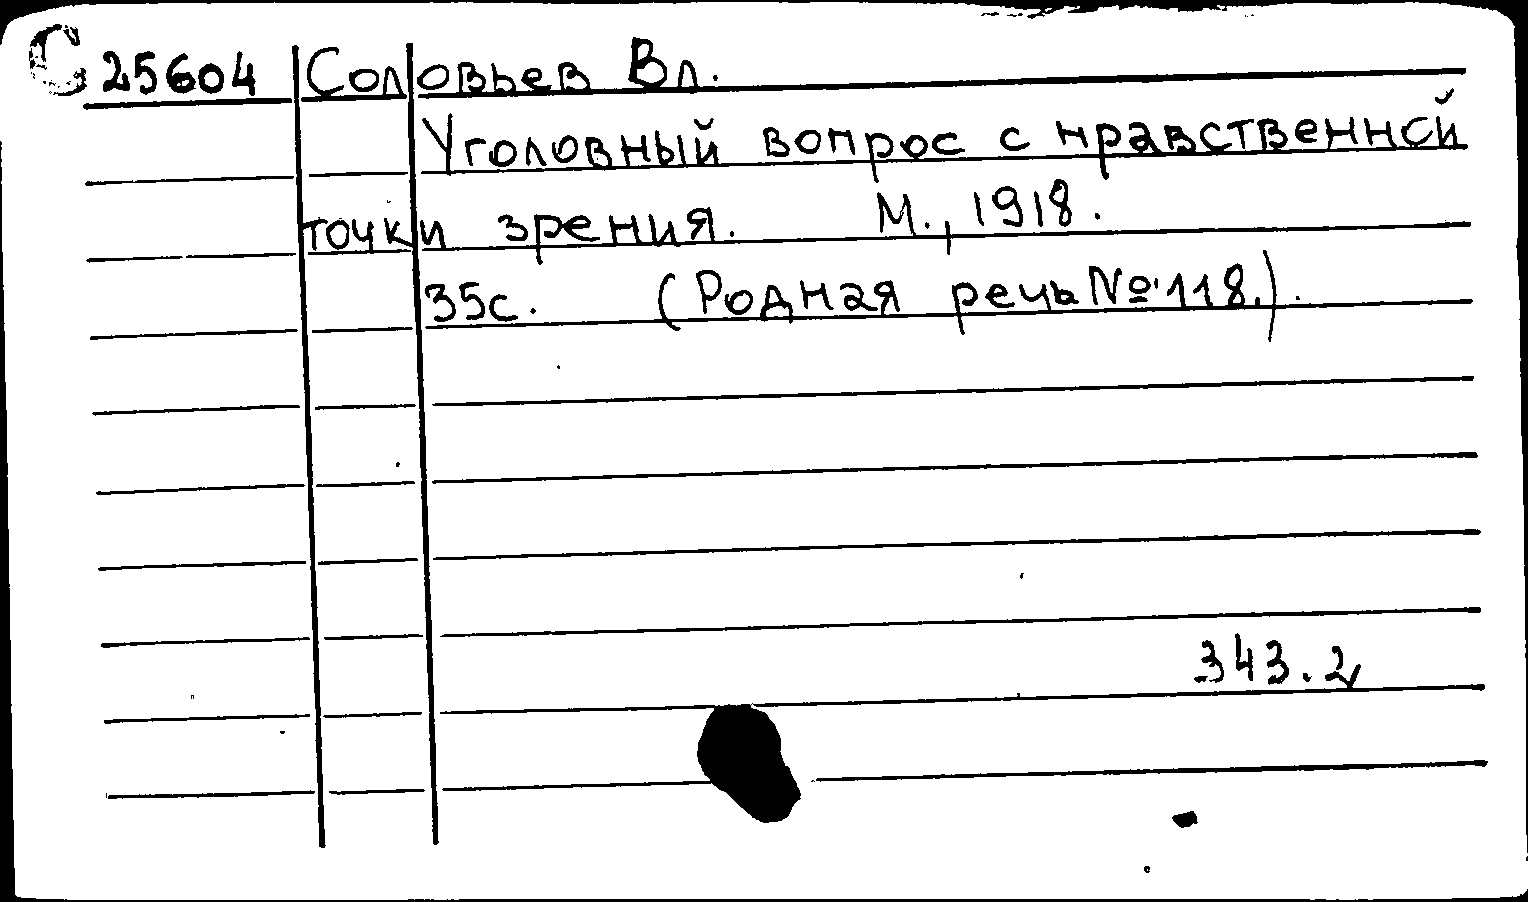 С 25604 Соловьев Вл.
Уголовный вопрос с нравственной
точки зрения. М., 1918.
35с. (Родная речь №118.).
343.2